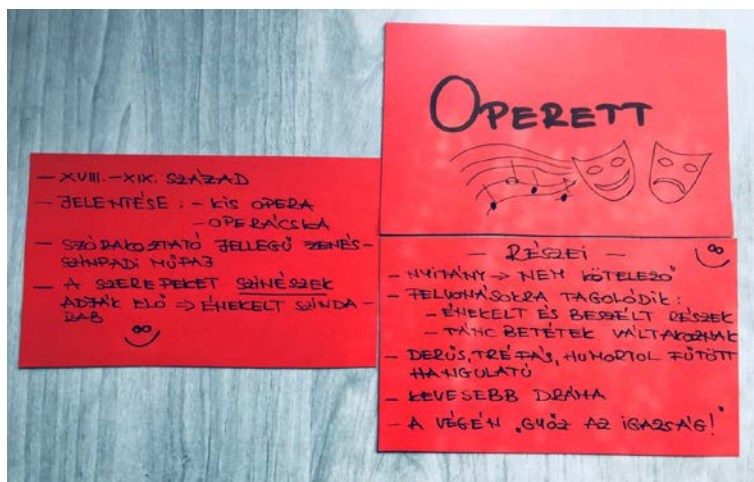 OPERETT
— XVIII.-XIX. SZÁZAD
— JELENTÉSE: - KIS OPERA
- OPERÁCSKA
— SZÓRAKOZTATÓ JELLEGŰ ZENÉS-
SZÍNPADI MŰFAJ
— A SZEREPEKET SZÍNÉSZEK
ADJÁK ELŐ ⇒ ÉNEKELT SZÍNDA-
RAB
— RÉSZEI —
- NYITÁNY ⇒ NEM KÖTELEZŐ
- FELVONÁSOKRA TAGOLÓDIK:
- ÉNEKELT ÉS BESZÉLT RÉSZEK
- TÁNC BETÉTEK VÁLTAKOZNAK
- DERŰS, TRÉFÁS, HUMORTOL FŰTÖTT
HANGULATÚ
- KEVESEBB DRÁMA
- A VÉGÉN „GYŐZ AZ IGAZSÁG!"